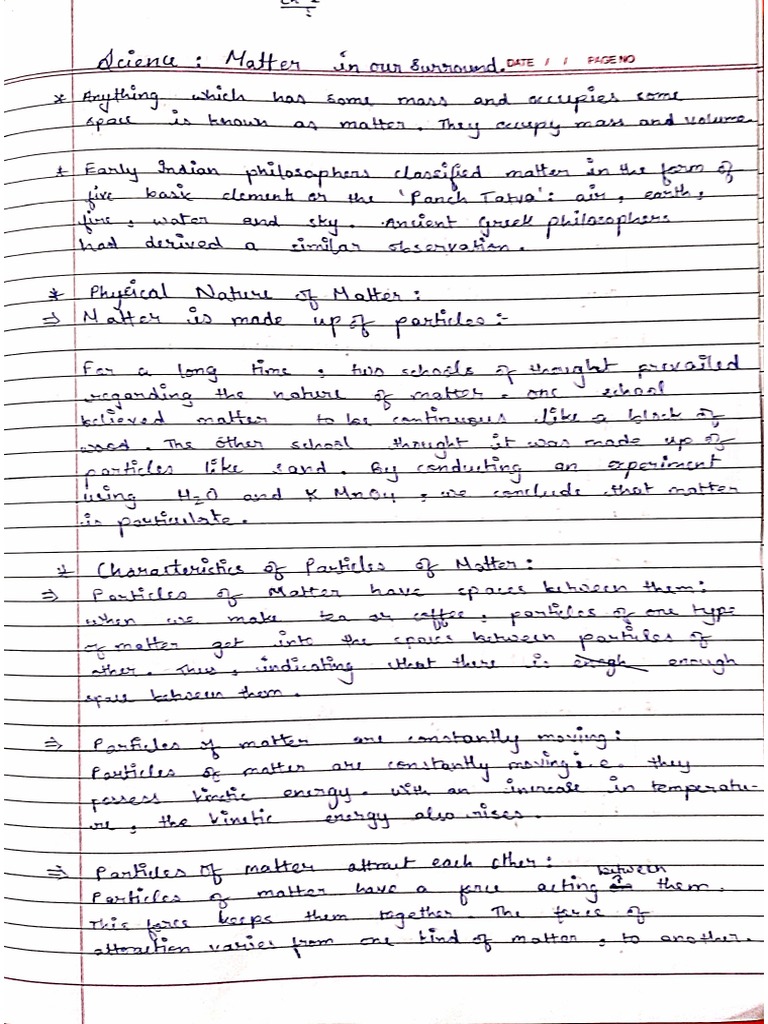 Ch-2
Science : Matter in our Surround. DATE / / PAGE NO
* Anything which has some mass and occupies some
space is known as matter. They occupy mass and volume
* Early Indian philosophers classified matter in the form of
five basic element or the 'Panch Tatva': air, earth,
fire, water and sky. Ancient Greek philosophers
had derived a similar observation.
* Physical Nature of Matter:
⇒ Matter is made up of particles:-
For a long time, two schools of thought prevailed
regarding the nature of matter. one school
believed matter to be continuous like a block of
wood. The other school thought it was made up of
particles like sand. By conducting an experiment
using H2O and KMnO4, we conclude that matter
is particulate.
* Characteristics of Particles of Matter:
⇒ Particles of Matter have spaces between them:
when we make tea or coffee, particles of one type
of matter get into the spaces between particles of
other. Thus, indicating that there is enough
space between them.
⇒ Particles of matter are constantly moving:
Particles of matter are constantly moving i.e. they
possess kinetic energy. with an increase in temperatu-
re, the kinetic energy also rises.
⇒ Particles of matter attract each other:
Particles of matter have a force acting between them.
This force keeps them together. The force of
attraction varies from one kind of matter, to another.